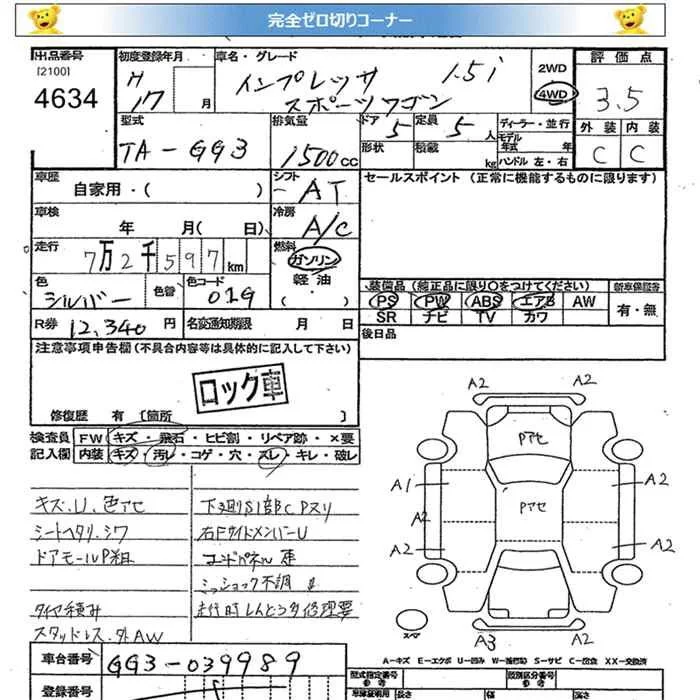 完全ゼロ切りコーナー
出品番号
[2100]
4634
初度登録年月
H
17 月
車名・グレード
インプレッサ 1.5i
スポーツワゴン
2WD
4WD
評価点
3.5
外装 内装
C C
型式
TA-GG3
排気量
1500cc
ドア 5
定員 5人
形状
積載 kg
ディーラー・並行
モデル
年式 年
ハンドル 左・右
車歴
自家用・( )
シフト
AT
セールスポイント (正常に機能するものに限ります)
車検
年 月( 日)
冷房
A/C
走行
7万2千597km
燃料
ガソリン
軽油
( )
色
シルバー
色替
色コード
01G
装備品 (純正品に限り○をつけてください)
PS PW ABS エアB AW
SR ナビ TV カワ
新車保証書
有・無
R券 12,340 円
名変通知期限 月 日
後日品
注意事項申告欄 (不具合内容等は具体的に記入して下さい)
ロック車
修復歴 有 [箇所 ]
検査員
記入欄
FW キズ・飛石・ヒビ割・リペア跡・×要
内装 キズ・汚レ・コゲ・穴・スレ・キレ・破レ
キズ.U.色アセ
シートヘタリ.シワ
ドアモールP粗
タイヤ積み
スタッドレス.外AW
下廻り
右FサイドメンバーU
ミッション不調
走行時
修理要
A2 A2
Pアセ
A1
A2
Pアセ
A2
A2
A2
A2
スペア
A3 A2
A-キズ E-エクボ U-凹み W-補修跡 S-サビ C-腐食 XX-交換済
車台番号
GG3-039989
登録番号
型式指定番号
参考
類別区分番号
参考
車輌証明用
長さ
幅
高さ